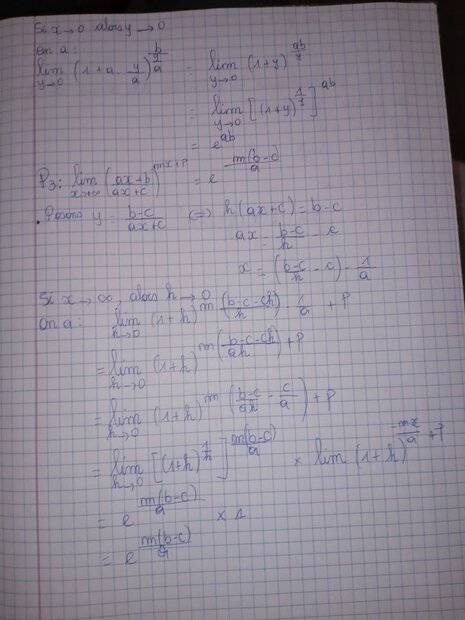 Si x→0 alors y→0
on a :
lim_{y→0} (1+a · y/a)^{b/(y/a)} = lim_{y→0} (1+y)^{ab/y}
= lim_{y→0} [(1+y)^{1/y}]^{ab}
= e^{ab}
P3 : lim_{x→∞} ((ax+b)/(ax+c))^{mx+p} = e^{m(b-c)/a}
• Posons y = (b-c)/(ax+c) ⟺ h(ax+c) = b-c
ax = (b-c)/h - c
x = ((b-c)/h - c) · 1/a
Si x→∞, alors h→0
On a : lim_{h→0} (1+h)^{m((b-c-ch)/h) · 1/a + p}
= lim_{h→0} (1+h)^{m((b-c-ch)/(ah)) + p}
= lim_{h→0} (1+h)^{m((b-c)/(ah) - c/a) + p}
= lim_{h→0} [(1+h)^{1/h}]^{m(b-c)/a} × lim (1+h)^{-mc/a + p}
= e^{m(b-c)/a} × 1
= e^{m(b-c)/a}